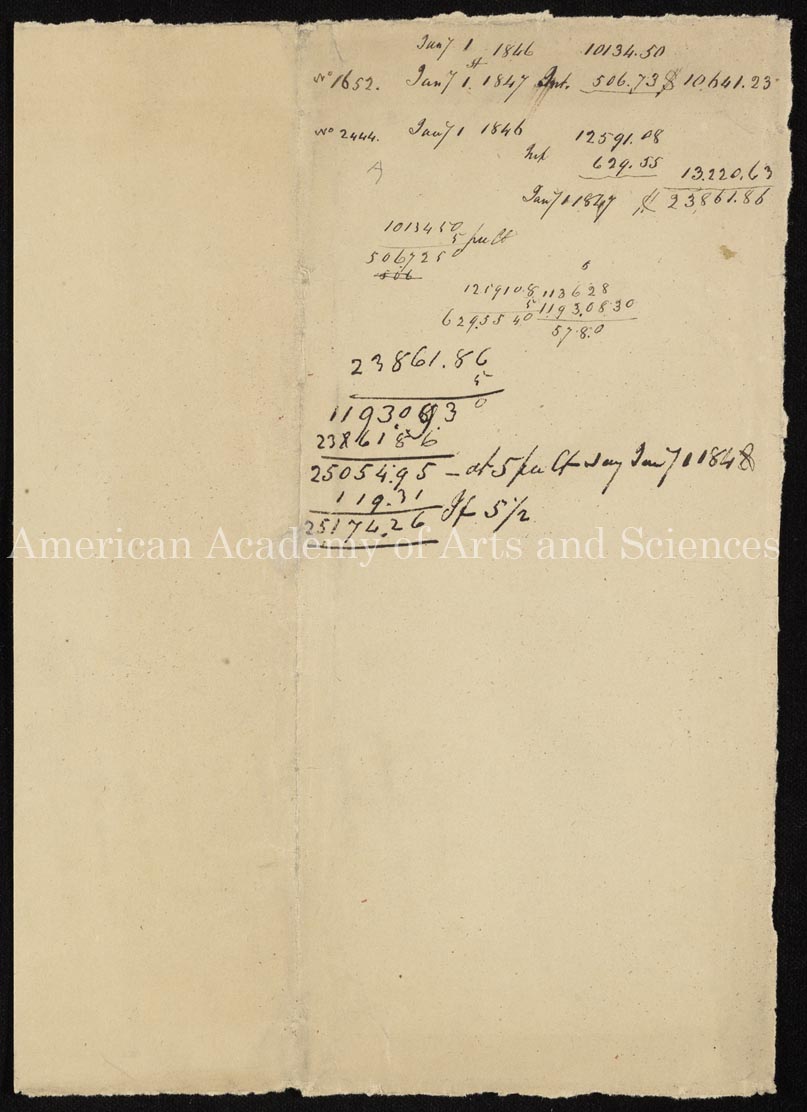 Jany 1 1846 10134.50
No 1652. Jany 1st 1847 Int. 506.73 $ 10,641.23
No 2444. Jany 1 1846 12591.08
Int 629.55 13.220.63
Jany 1.1847 $ 23,861.86
1013450
5 pr Ct
5067250
506
6
125910.8 113628
5 1193.0830
629.55 40 578.0
23861.86
5
119309.30
23861.86
25054.95 – at 5 pr Ct say Jany 1 1848
119.31 If 5 1/2
25174.26
American Academy of Arts and Sciences